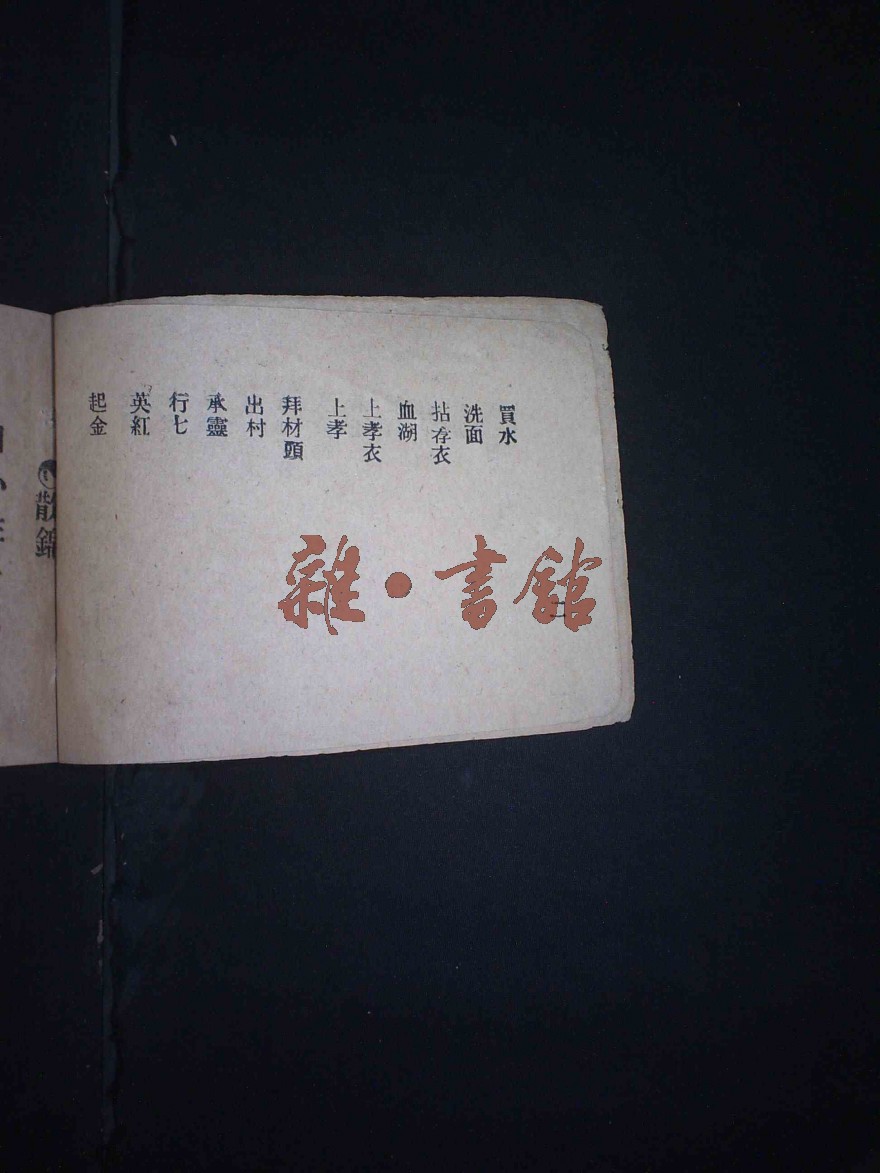 買水
洗面
拈存衣
血湖
上孝衣
上孝
拜材頭
出村
承靈
行七
英紅
起金
散錦
雜·書館
二